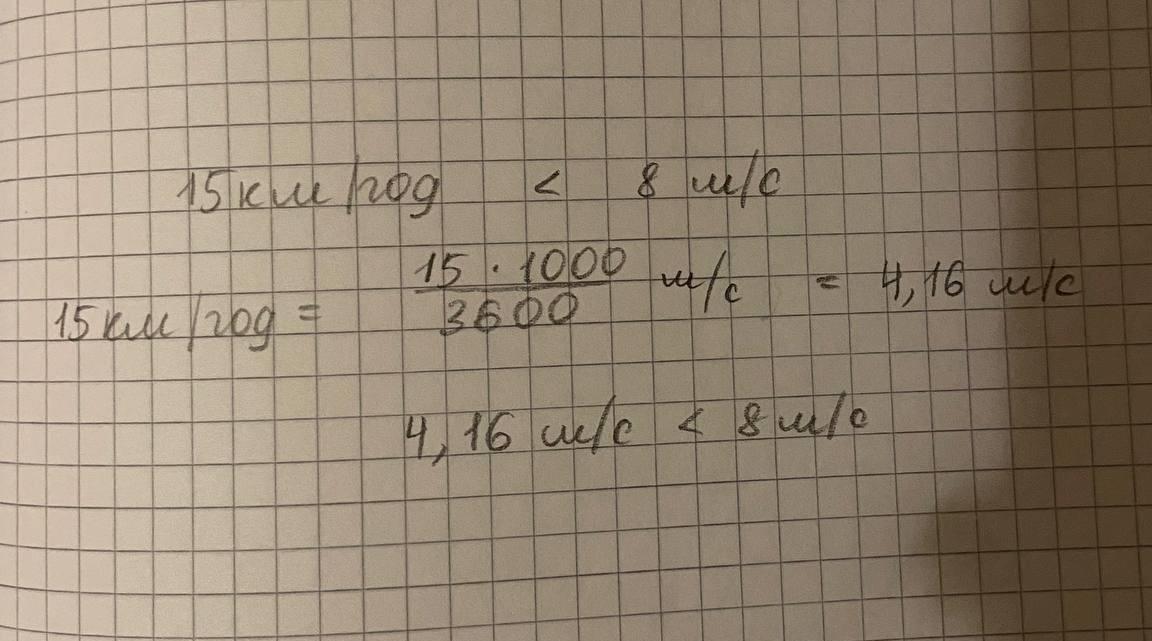 15 км/год < 8 м/с
15 км/год = 15 · 1000 / 3600 м/с = 4,16 м/с
4,16 м/с < 8 м/с